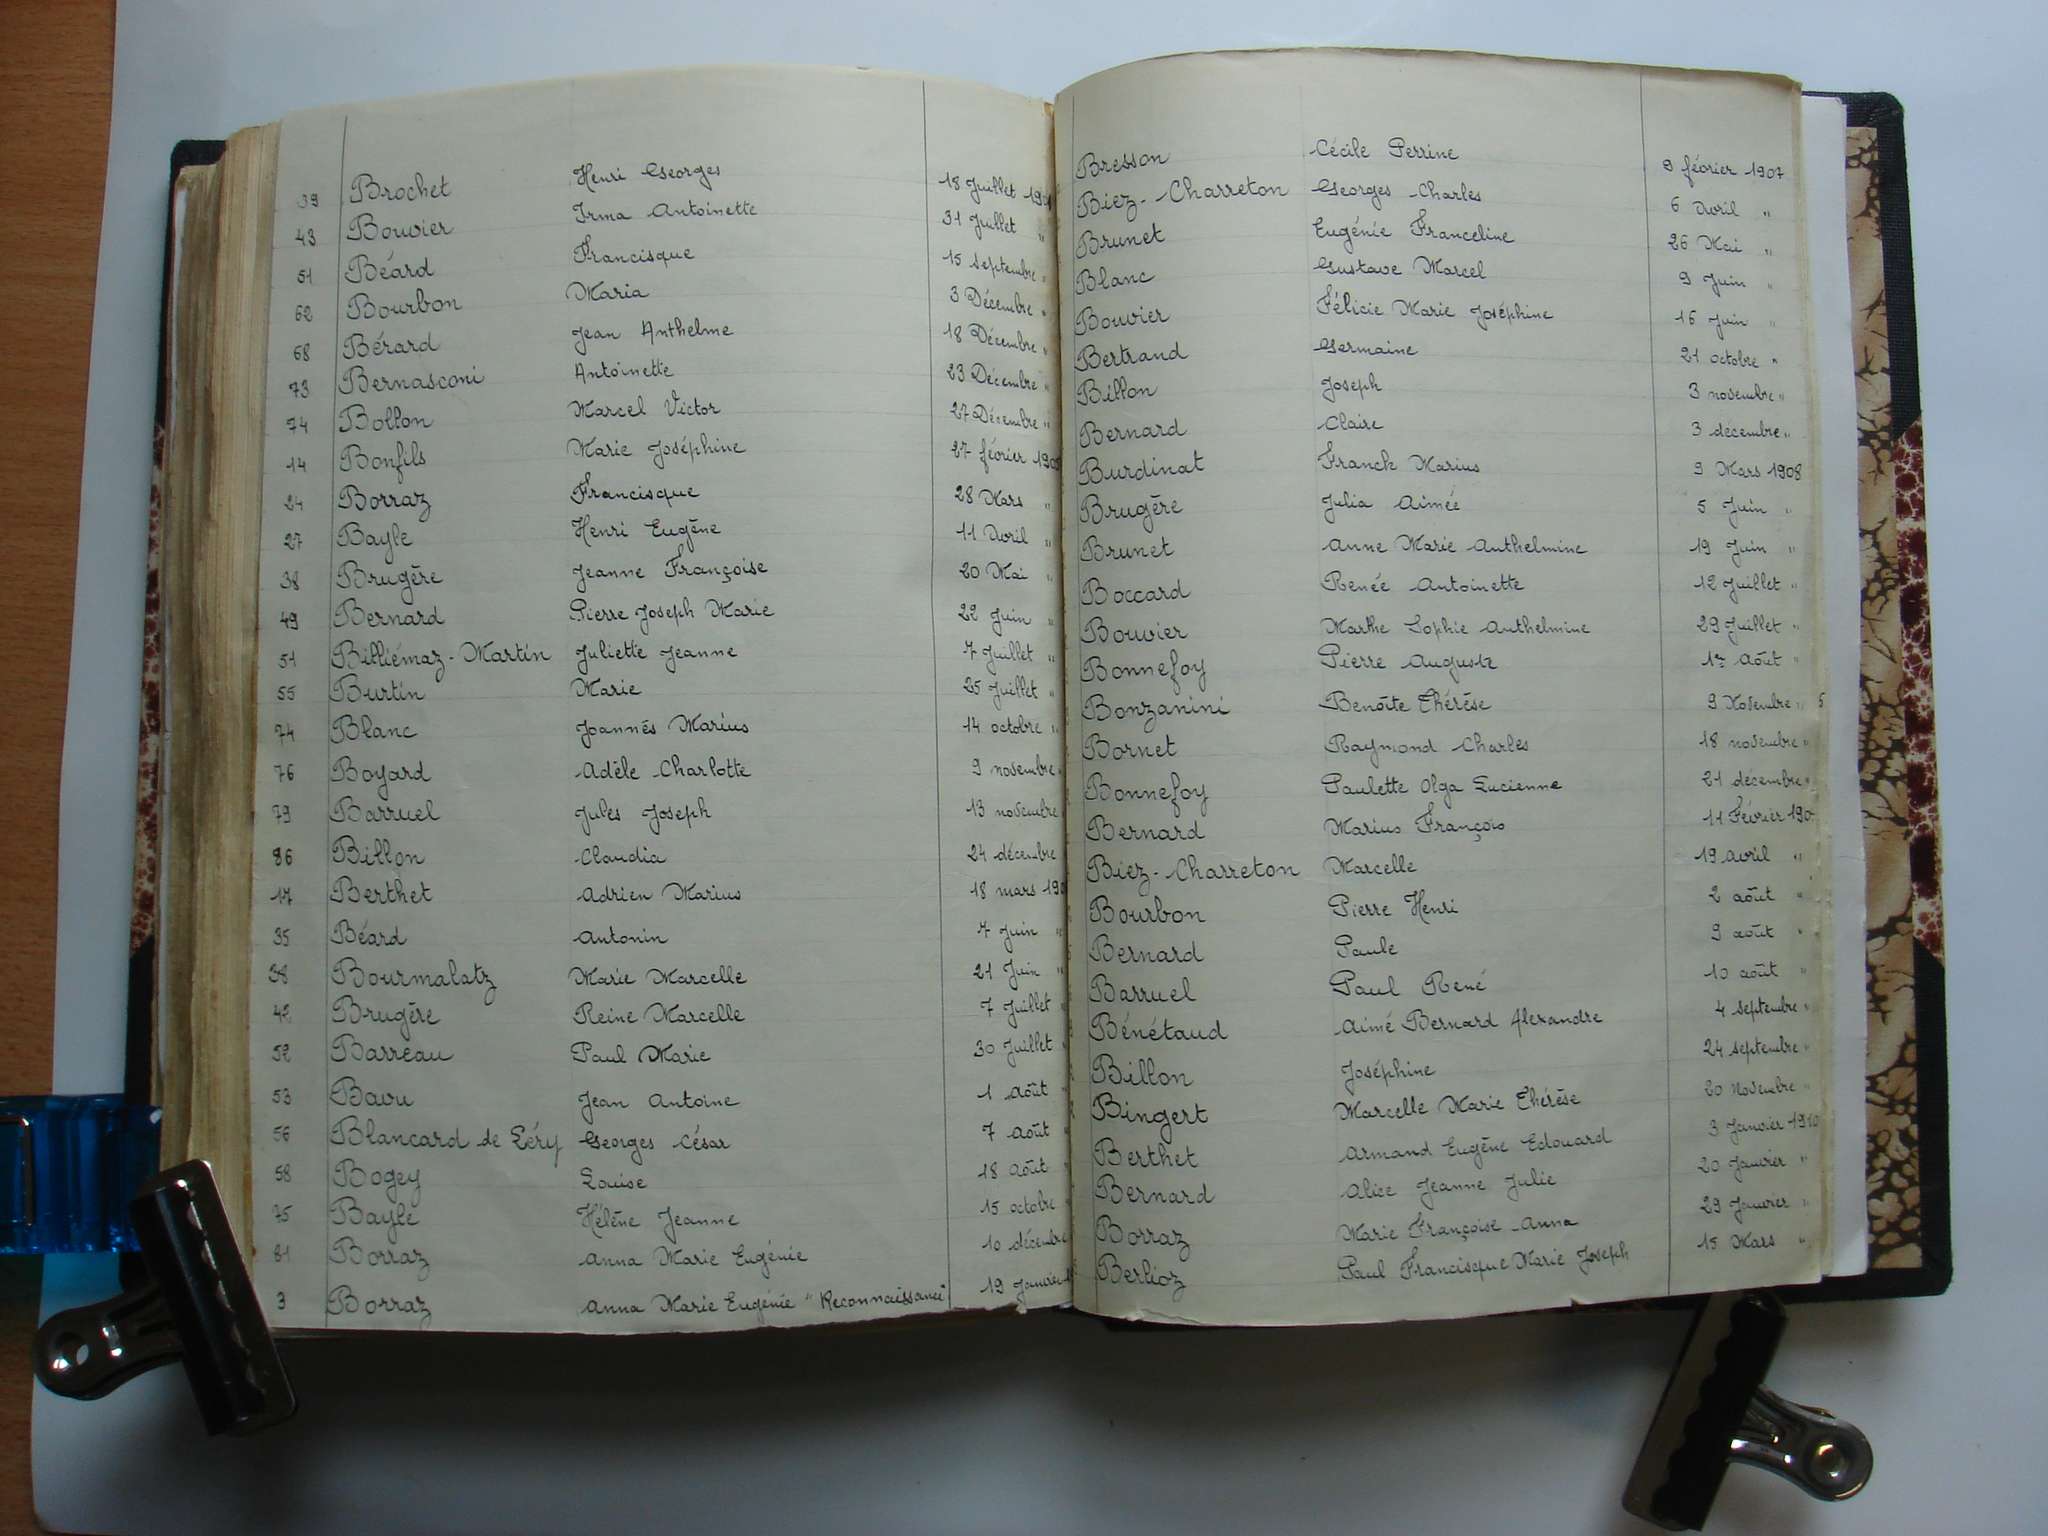 39 Brochet Henri Georges 18 Juillet
43 Bouvier Irma Antoinette 31 Juillet "
51 Béard Francisque 15 septembre "
62 Bourbon Maria 3 Décembre "
68 Bérard Jean Anthelme 18 Décembre "
73 Bernasconi Antoinette 23 Décembre "
74 Bollon Marcel Victor 27 Décembre "
14 Bonfils Marie Joséphine 27 février
24 Borraz Francisque 28 Mars "
27 Bayle Henri Eugène 11 Avril "
38 Brugère Jeanne Françoise 20 Mai "
49 Bernard Pierre Joseph Marie 22 Juin "
51 Billiémaz-Martin Juliette Jeanne 7 Juillet "
55 Burtin Marie 25 Juillet "
74 Blanc Joannés Marius 14 octobre "
76 Boyard Adèle Charlotte 9 novembre "
79 Barruel Jules Joseph 13 novembre
86 Billon Claudia 24 décembre
17 Berthet Adrien Marius 18 mars
35 Béard Antonin 7 Juin "
38 Bourmalatz Marie Marcelle 21 Juin "
42 Brugère Reine Marcelle 7 Juillet "
52 Barreau Paul Marie 30 Juillet "
53 Bavu Jean Antoine 1 Août "
56 Blancard de Léry Georges César 7 Août "
58 Bogey Louise 18 Août "
75 Bayle Hélène Jeanne 15 octobre "
81 Borraz Anna Marie Eugénie 10 décembre
3 Borraz Anna Marie Eugénie "Reconnaissance" 19 Janvier
Bresson Cécile Perrine 9 février 1907
Biez-Charreton Georges Charles 6 Avril "
Brunet Eugénie Franceline 26 Mai "
Blanc Gustave Marcel 9 Juin "
Bouvier Félicie Marie Joséphine 16 Juin "
Bertrand Germaine 21 octobre "
Billon Joseph 3 novembre "
Bernard Claire 3 décembre "
Burdinat Franck Marius 9 Mars 1908
Brugère Julia Aimée 5 Juin "
Brunet Anne Marie Anthelmine 19 Juin "
Boccard Renée Antoinette 12 Juillet "
Bouvier Marthe Sophie Anthelmine 29 Juillet "
Bonnefoy Pierre Auguste 1er Août "
Bonzanini Benoîte Thérèse 9 Novembre "
Bornet Raymond Charles 18 novembre "
Bonnefoy Paulette Olga Lucienne 21 décembre "
Bernard Marius François 11 Février
Biez-Charreton Marcelle 19 avril "
Bourbon Pierre Henri 2 août "
Bernard Paule 9 août "
Barruel Paul René 10 août "
Bénétaud Aimé Bernard Alexandre 4 septembre "
Billon Joséphine 24 septembre "
Bingert Marcelle Marie Thérèse 20 Novembre "
Berthet Armand Eugène Edouard 3 Janvier 1910
Bernard Alice Jeanne Julie 20 Janvier "
Borraz Marie Françoise Anna 29 Janvier "
Berlioz Paul Francisque Marie Joseph 15 Mars "